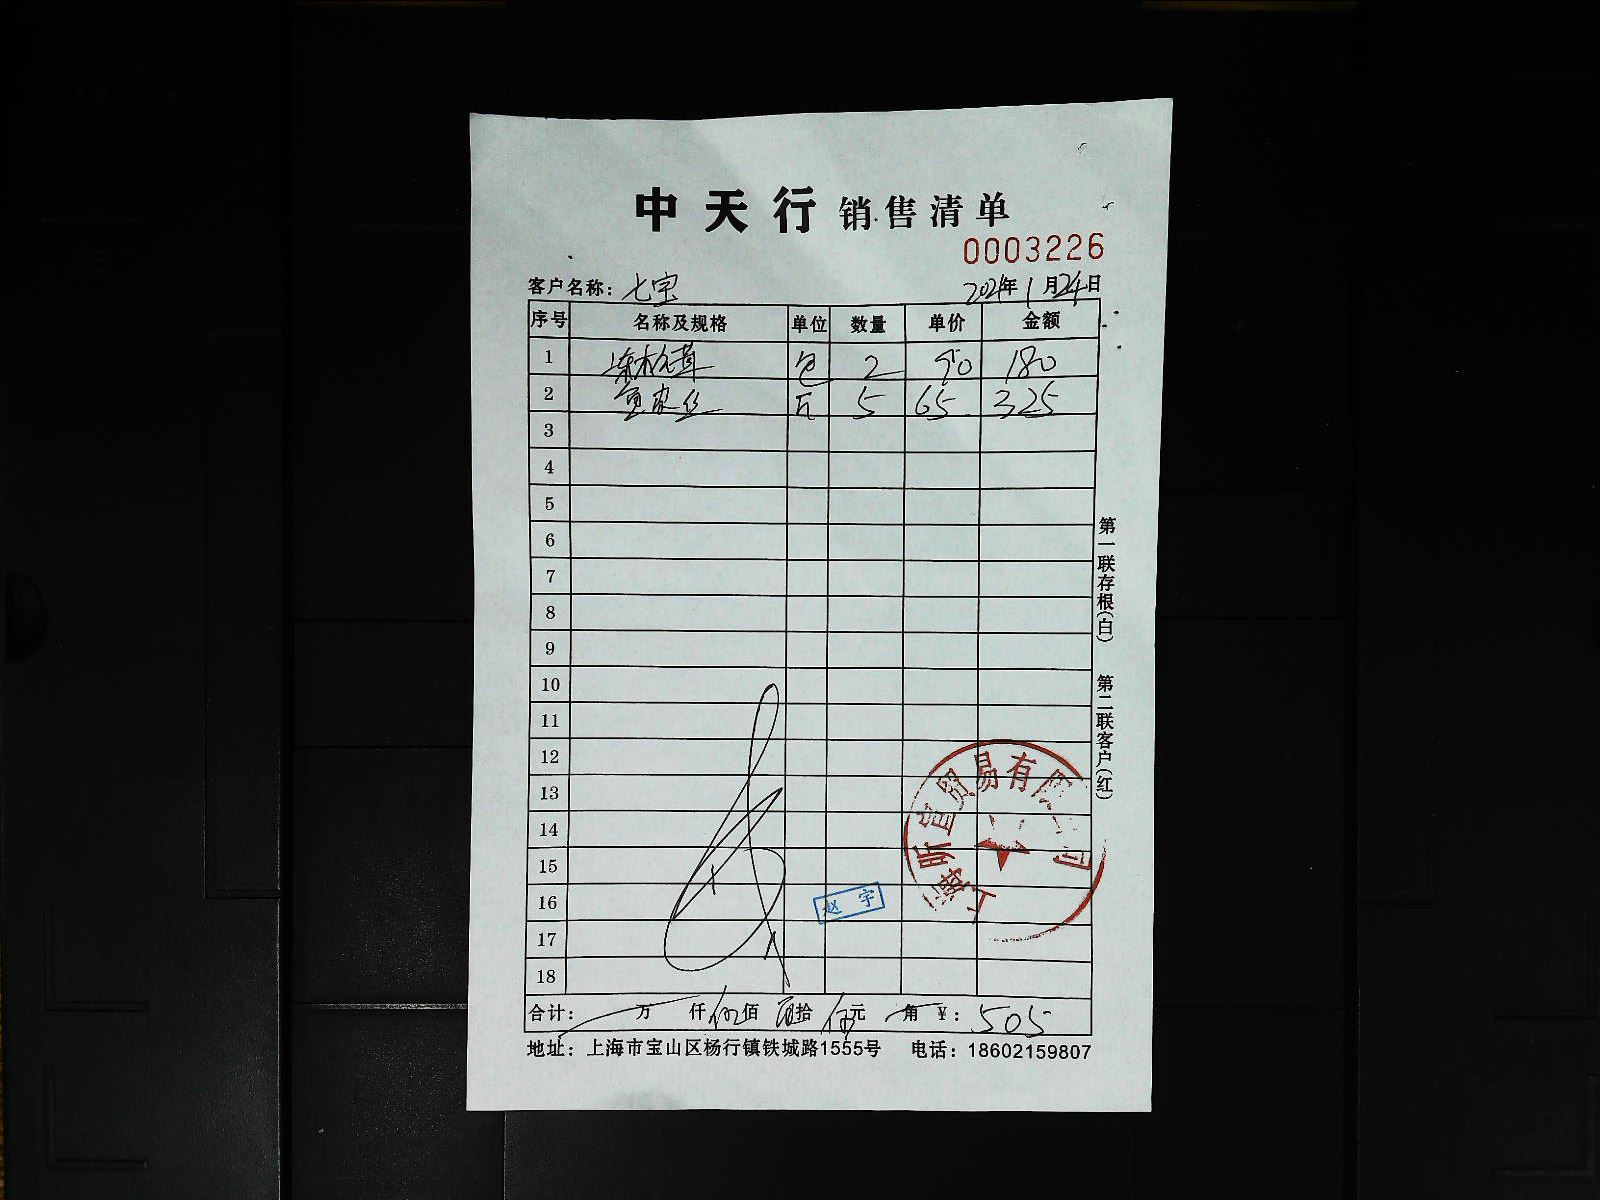 中天行 销售清单
0003226
客户名称：七宝 2024年1月24日
序号 名称及规格 单位 数量 单价 金额
1 包 2 90 180
2 鱼皮丝 斤 5 65 325
3
4
5
6
7
8
9
10
11
12
13
14
15
16
17
18
合计： 万 仟 伍佰 零拾 伍元 角 ¥：505
地址：上海市宝山区杨行镇铁城路1555号 电话：18602159807
第一联存根（白） 第二联客户（红）
贸易有限公司
赵宇